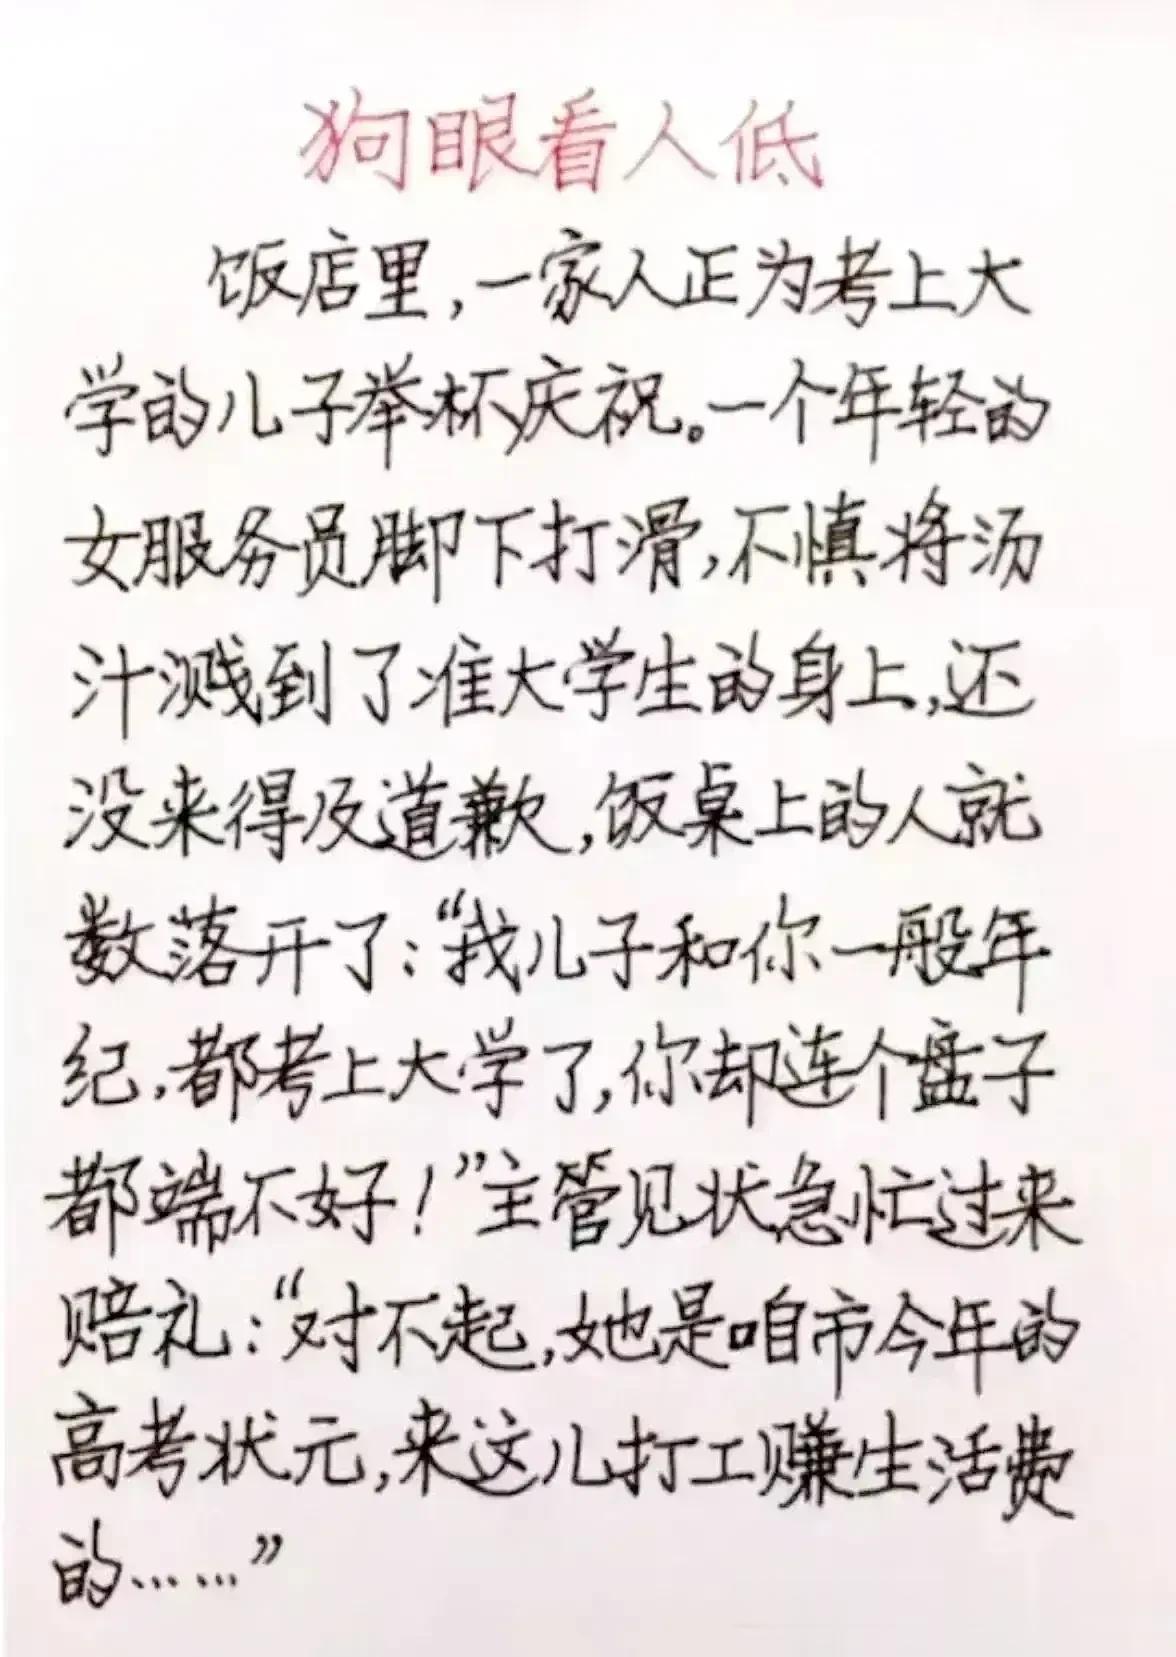 狗眼看人低
饭店里,一家人正为考上大
学的儿子举杯庆祝。一个年轻的
女服务员脚下打滑,不慎将汤
汁溅到了准大学生的身上,还
没来得及道歉,饭桌上的人就
数落开了:“我儿子和你一般年
纪,都考上大学了,你却连个盘子
都端不好!”主管见状急忙过来
赔礼:“对不起,她是咱市今年的
高考状元,来这儿打工赚生活费
的……”